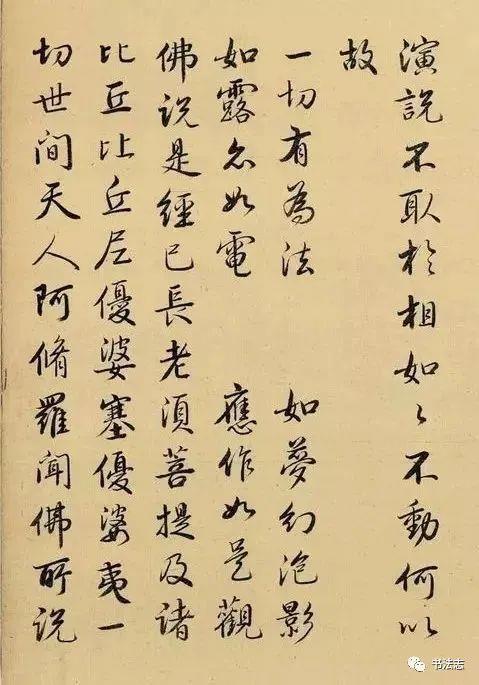 演說不取於相如〻不動何以
故
一切有為法　如夢幻泡影
如露亦如電　應作如是觀
佛說是經已長老須菩提及諸
比丘比丘尼優婆塞優婆夷一
切世間天人阿脩羅聞佛所說
书法志